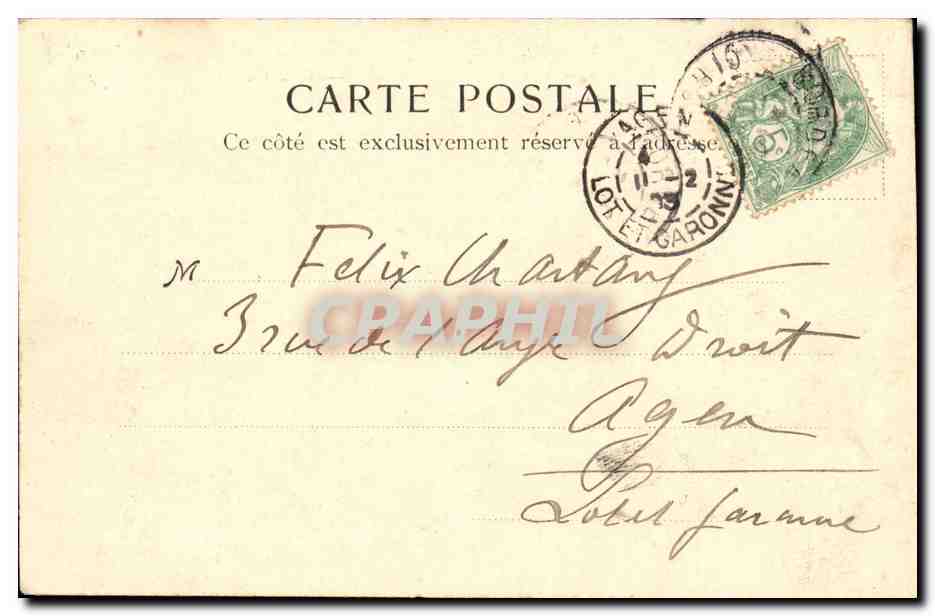 CARTE POSTALE
Ce côté est exclusivement réservé à l'adresse.
AGEN
11 2
LOT ET GARONNE
BORD
5
M Felix Chartang
CRAPHIL
3 rue de l'Ange Droit
Agen
Lot et Garonne